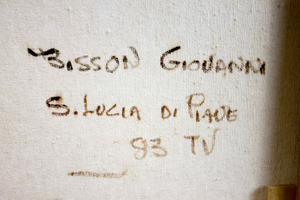 BISSON GIOVANNI
S. LUCIA DI PIAVE
83 TV